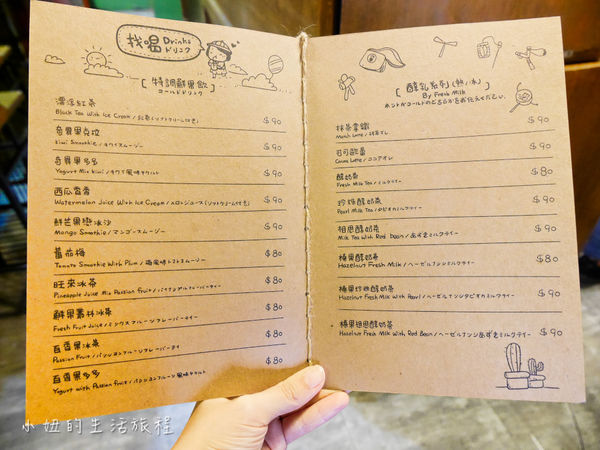 找喝 Drinks
ドリンク
[ 特調鮮果飲 ]
コールドドリンク
漂浮紅茶 $90
Black Tea With Ice Cream / 紅茶(ソフトクリーム付き)
奇異果冰拉 $90
Kiwi Smoothie / キウイスムージー
奇異果多多 $90
Yogurt Mix Kiwi / キウイ風味ヤクルト
西瓜雪霜 $90
Watermelon Juice With Ice Cream / メロンジュース(ソフトクリーム付き)
鮮芒果戀冰沙 $90
Mango Smoothie / マンゴースムージー
蕃茄梅 $80
Tomato Smoothie With Plum / 梅風味トマトスムージー
旺來冰茶 $80
Pineapple Juice Mix Passion Fruit / パイナップルフレーバーティー
鮮果叢林冰茶 $80
Fresh Fruit Juice / ミックスフルーツフレーバーティー
百香果冰茶 $80
Passion Fruit / パッションフルーツフレーバーティ
百香果多多 $80
Yogurt with Passion fruit / パッションフルーツ風味ヤクルト
[ 醇乳系列(熱/冰) ]
By Fresh Milk
ホットかコールドのどちらかをお伝えください。
抹茶拿鐵 $90
Matcha Latte / 抹茶ラテ
可可歐蕾 $90
Cocoa Latte / ココアオレ
醇奶茶 $80
Fresh Milk Tea / ミルクティー
珍珠醇奶茶 $90
Pearl Milk Tea / タピオカミルクティー
相思醇奶茶 $90
Milk Tea With Red bean / あずきミルクティー
榛果醇奶茶 $80
Hazelnut Fresh Milk / ヘーゼルナッツミルクティー
榛果珍珠醇奶茶 $90
Hazelnut Fresh Milk With Pearl / ヘーゼルナッツタピオカミルクティー
榛果相思醇奶茶 $90
Hazelnut Fresh Milk With Red Bean / ヘーゼルナッツあずきミルクティー
小妞的生活旅程